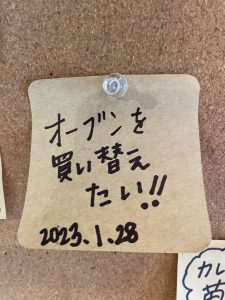 オーブンを
買い替え
たい!!
2023.1.28
カレ